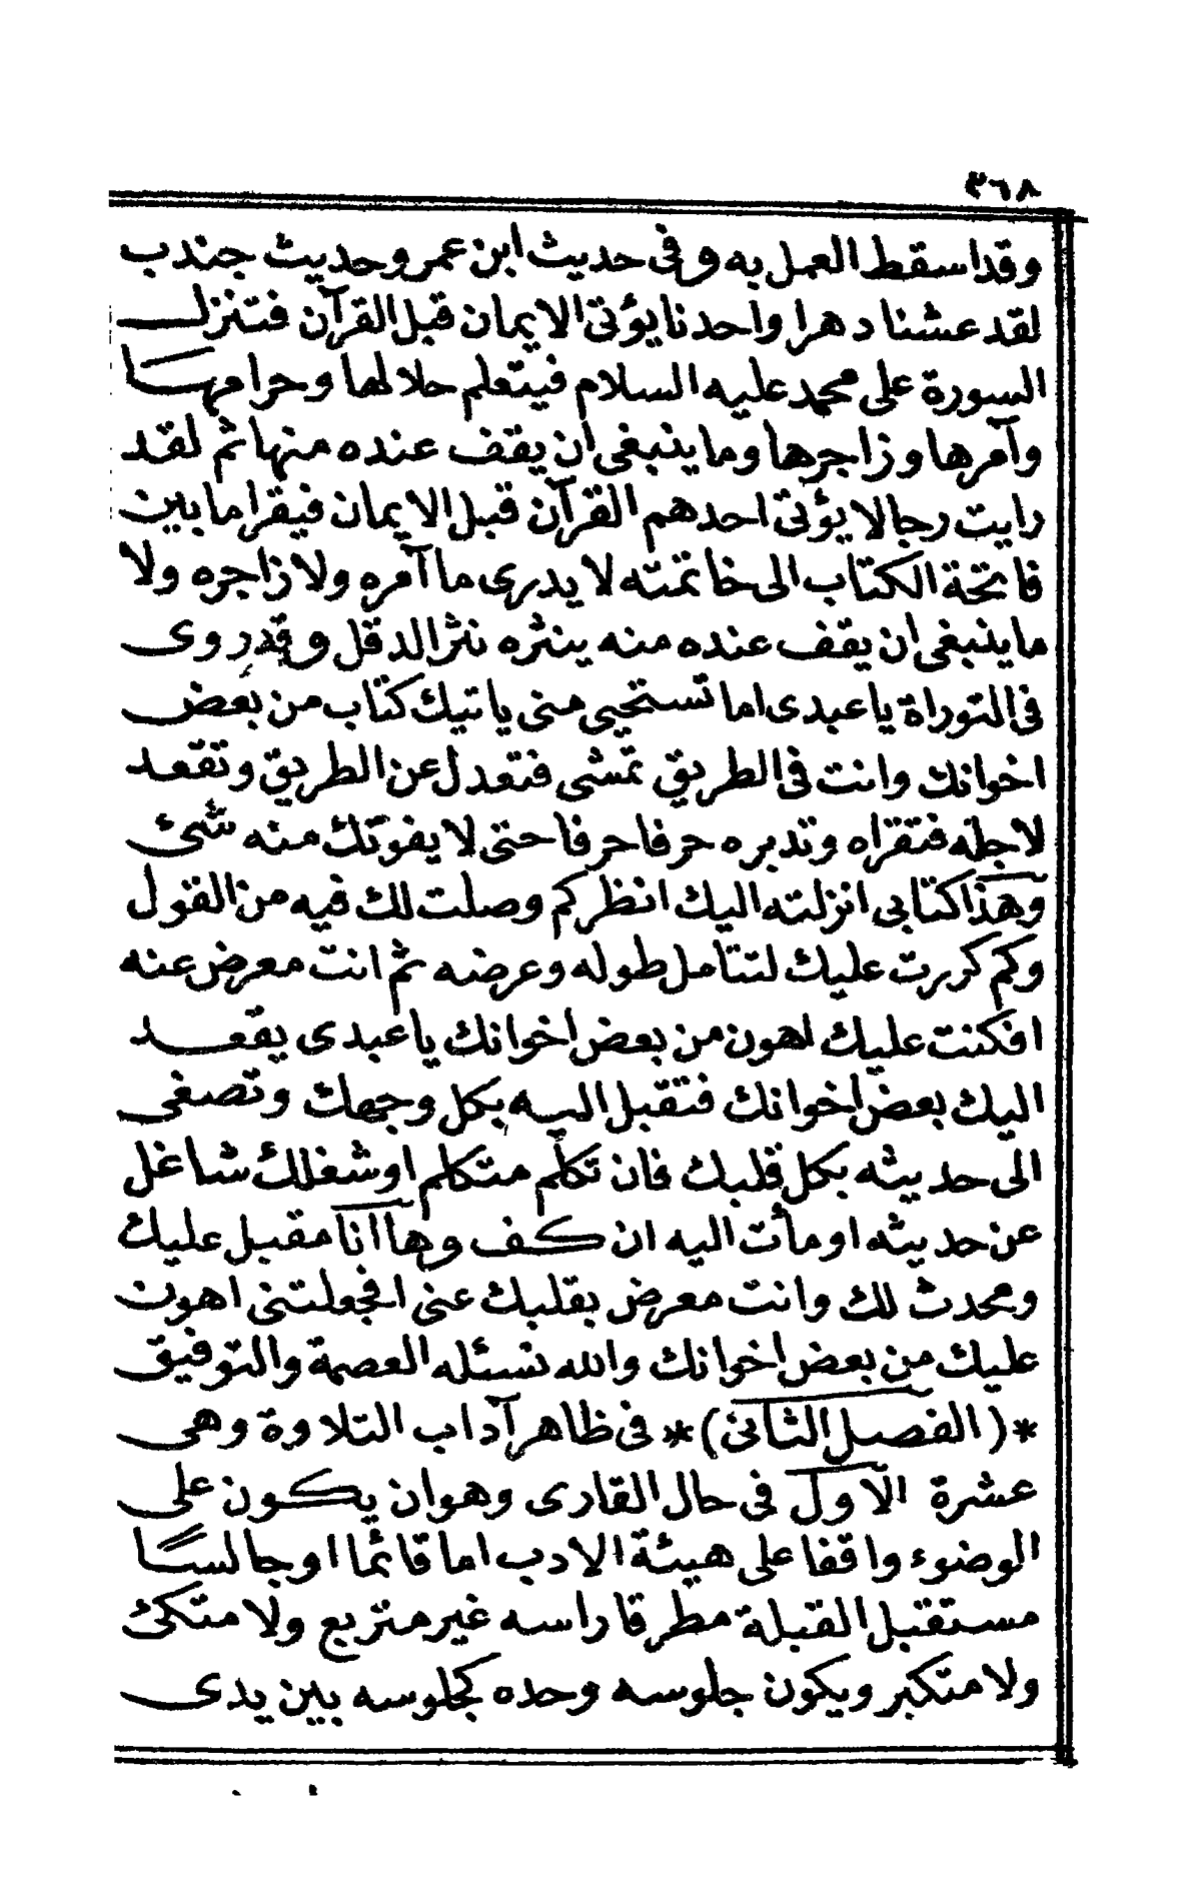 ٣٦٨
وقد اسقط العمل به وفى حديث ابن عمر وحديث جندب
لقد عشنا دهرا واحدنا يؤتى الايمان قبل القرآن فتنزل
السورة على محمد عليه السلام فيتعلم حلالها وحرامها
وآمرها وزاجرها وما ينبغى ان يقف عنده منها ثم لقد
رايت رجالا يؤتى احدهم القرآن قبل الايمان فيقرا ما بين
فاتحة الكتاب الى خاتمته لا يدرى ما آمره ولا زاجره ولا
ما ينبغى ان يقف عنده منه ينثره نثر الدقل وقد روى
فى التوراة يا عبدى اما تستحيى منى ياتيك كتاب من بعض
اخوانك وانت فى الطريق تمشى فتعدل عن الطريق وتقعد
لاجله فتقراه وتدبره حرفا حرفا حتى لا يفوتك منه شئ
وهذا كتابى انزلته اليك انظر كم وصلت لك فيه من القول
وكم كررت عليك لتتامل طوله وعرضه ثم انت معرض عنه
افكنت عليك اهون من بعض اخوانك يا عبدى يقعد
اليك بعض اخوانك فتقبل اليه بكل وجهك وتصغى
الى حديثه بكل قلبك فان تكلم متكلم او شغلك شاغل
عن حديثه اومأت اليه ان كف وها انا مقبل عليك
ومحدث لك وانت معرض بقلبك عنى افجعلتنى اهون
عليك من بعض اخوانك والله نسئله العصمة والتوفيق
*(الفصل الثانى)* فى ظاهر آداب التلاوة وهى
عشرة الاول فى حال القارى وهو ان يكون على
الوضوء واقفا على هيئة الادب اما قائما او جالسا
مستقبل القبلة مطرقا راسه غير متربع ولا متكئ
ولا متكبر ويكون جلوسه وحده كجلوسه بين يدى